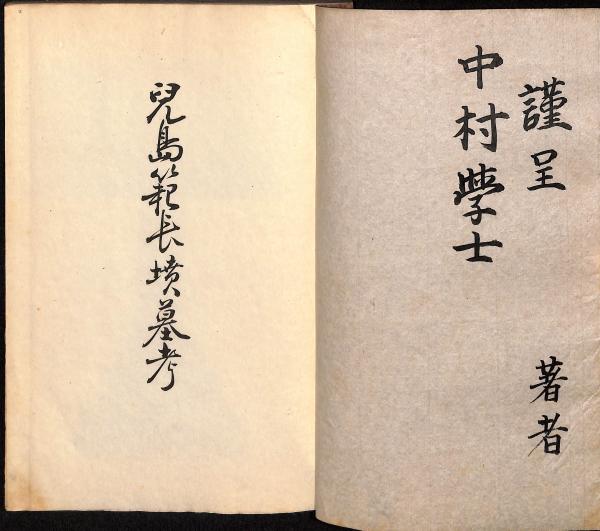 謹呈 著者
中村學士
兒島範長墳墓考